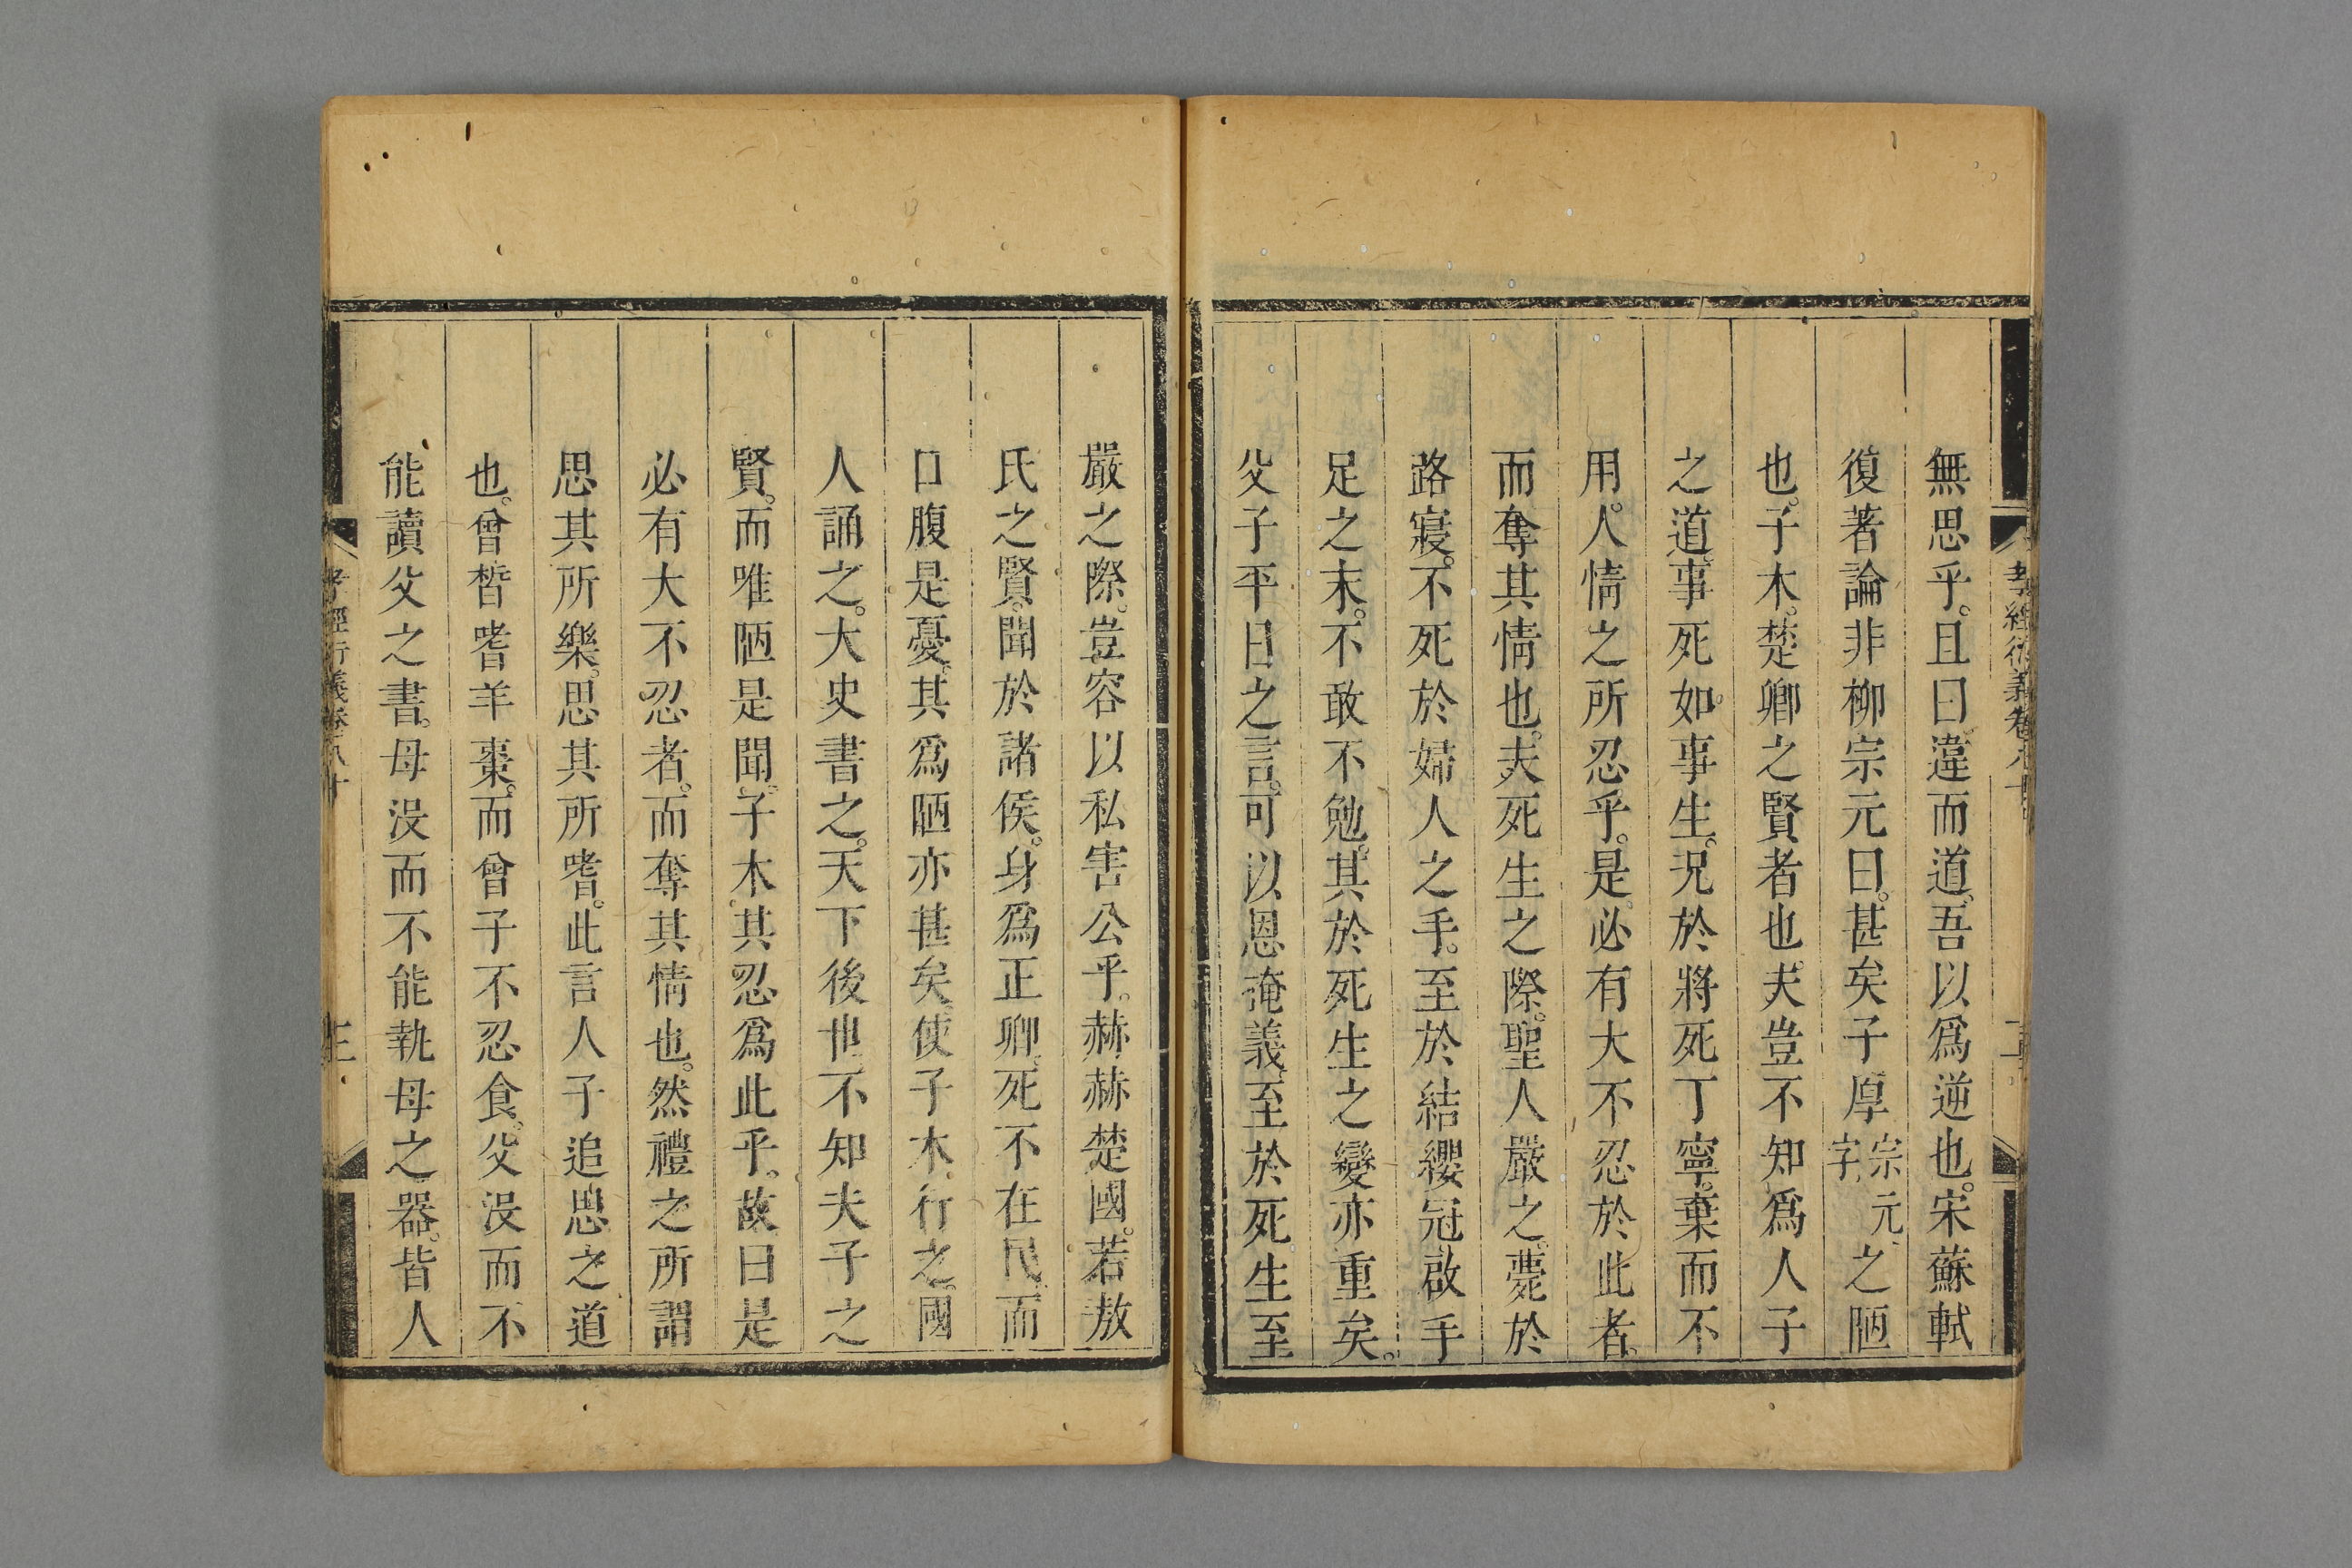 無思乎。且曰違而道。吾以爲逆也。宋蘇軾
復著論非柳宗元曰。甚矣子厚宗元字。之陋
也。子木。楚卿之賢者也。夫豈不知爲人子
之道。事死如。事生。況於將死丁寧。棄而不
用。人情之所忍乎。是必有大不忍於此者。
而奪其情也。夫死生之際。聖人嚴之。薨於
路寢。不死於婦人之手。至於結纓冠啟手
足之末。不敢不勉。其於死生之變亦重矣。
父子平日之言。可以恩掩義。至於死生至
嚴之際。豈容以私害公乎。赫赫楚國。若敖
氏之賢。聞於諸侯。身爲正卿。死不在民。而
口腹是憂。其爲陋亦甚矣。使子木。行之。國
人誦之。大史書之。天下後世不知夫子之
賢。而唯陋是聞。子木。其忍爲此乎。故曰是
必有大不忍者。而奪其情也。然禮之所謂
思其所樂。思其所嗜。此言人子追思之道
也。曾晳嗜羊棗。而曾子不忍食。父沒而不
能讀父之書。母沒而不能執母之器。皆人